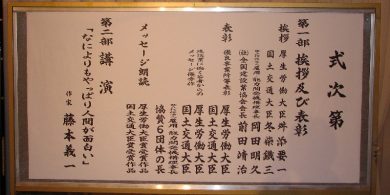 式次第
第一部 挨拶及び表彰
挨拶
厚生労働大臣 舛添要一
国土交通大臣 冬柴鐵三
岡田明久
(社)全国建設業協会会長 前田靖治
表彰
優良事業所等表彰
厚生労働大臣
国土交通大臣
メッセージ優秀作
厚生労働大臣
国土交通大臣
協賛6団体の長
メッセージ朗読
厚生労働大臣賞受賞作品
国土交通大臣賞受賞作品
第二部 講演
「なによりもやっぱり人間が面白い」
作家 藤本義一